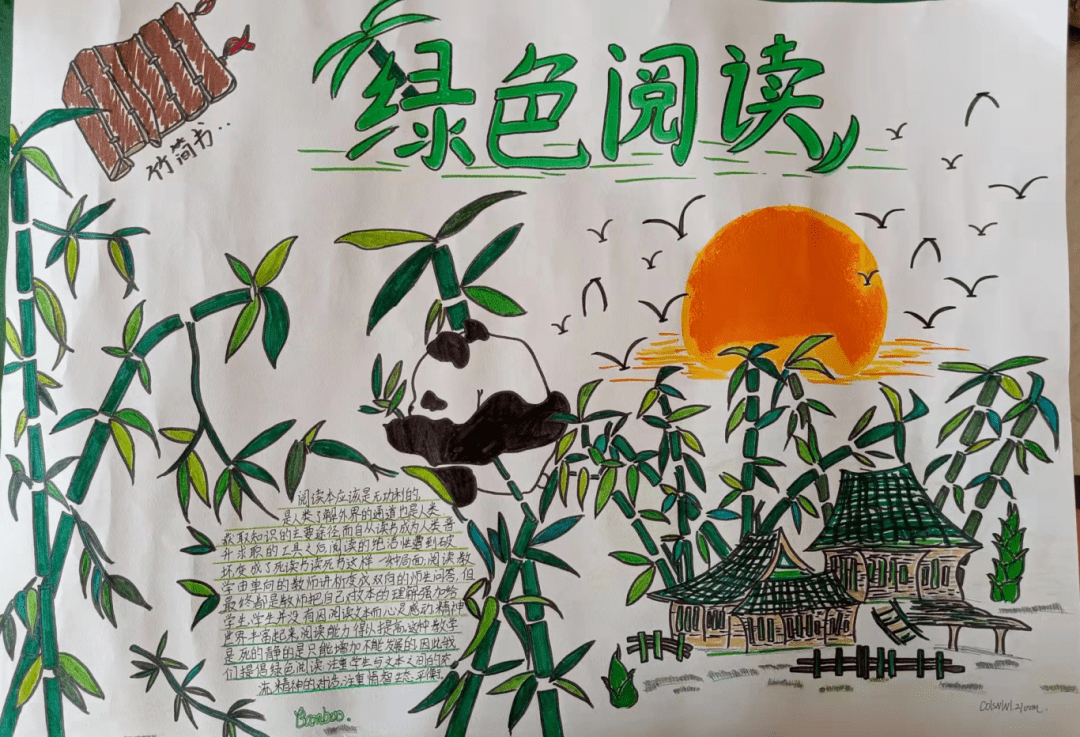 绿色阅读
竹简书..
阅读本应该是无功利的,
是人类了解外界的通道也是人类
获取知识的主要途径而自从读书成为人类晋
升求职的工具之后阅读的
坏变成了死读书读死书这样一种局面,阅读教
学由单向的教师讲析变成双向的师生问答,但
最终都是教师把自己对文本的理解强加给
学生,学生并没有因阅读文本而心灵感动,精神
世界丰富起来,阅读能力得以提高,这种教学
是死的静的是只能增加不能发展的因此我
们提倡绿色阅读,注重学生与文本之间的交
流,精神的对话注重情智生态平衡.
Bamboo.